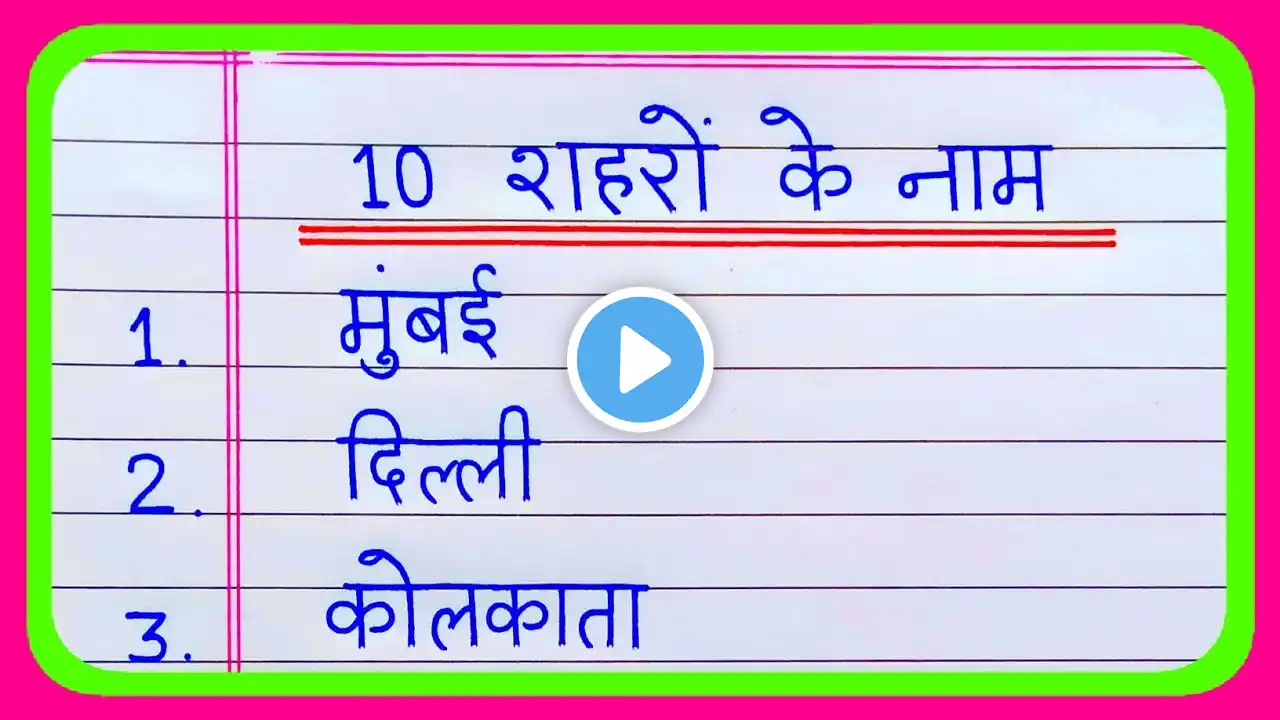 10 शहरों के नाम
1. मुंबई
2. दिल्ली
3. कोलकाता